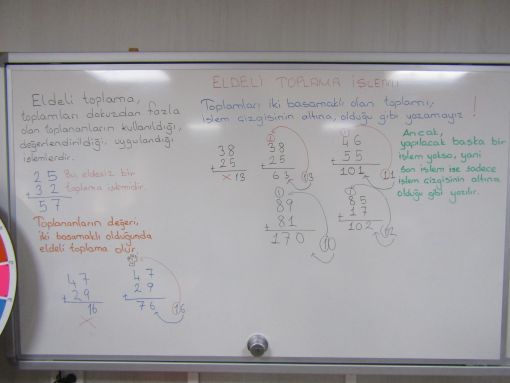 ELDELİ TOPLAMA İŞLEMİ
Eldeli toplama,
toplamları dokuzdan fazla
olan toplananların kullanıldığı,
değerlendirildiği, uygulandığı
işlemlerdir.
25
+32
57
Bu eldesiz bir
toplama işlemidir.
Toplananların değeri,
iki basamaklı olduğunda
eldeli toplama olur.
47
+29
16
×
47
+29
76
16
Toplamları iki basamaklı olan toplamı,
işlem çizgisinin altına, olduğu gibi yazamayız !
38
+25
×13
1
38
+25
63
13
1
46
+55
101
11
1
89
+81
170
10
1
85
+17
102
12
Ancak,
yapılacak başka bir
işlem yoksa, yani
son işlem ise sadece
işlem çizgisinin altına
olduğu gibi yazılır.